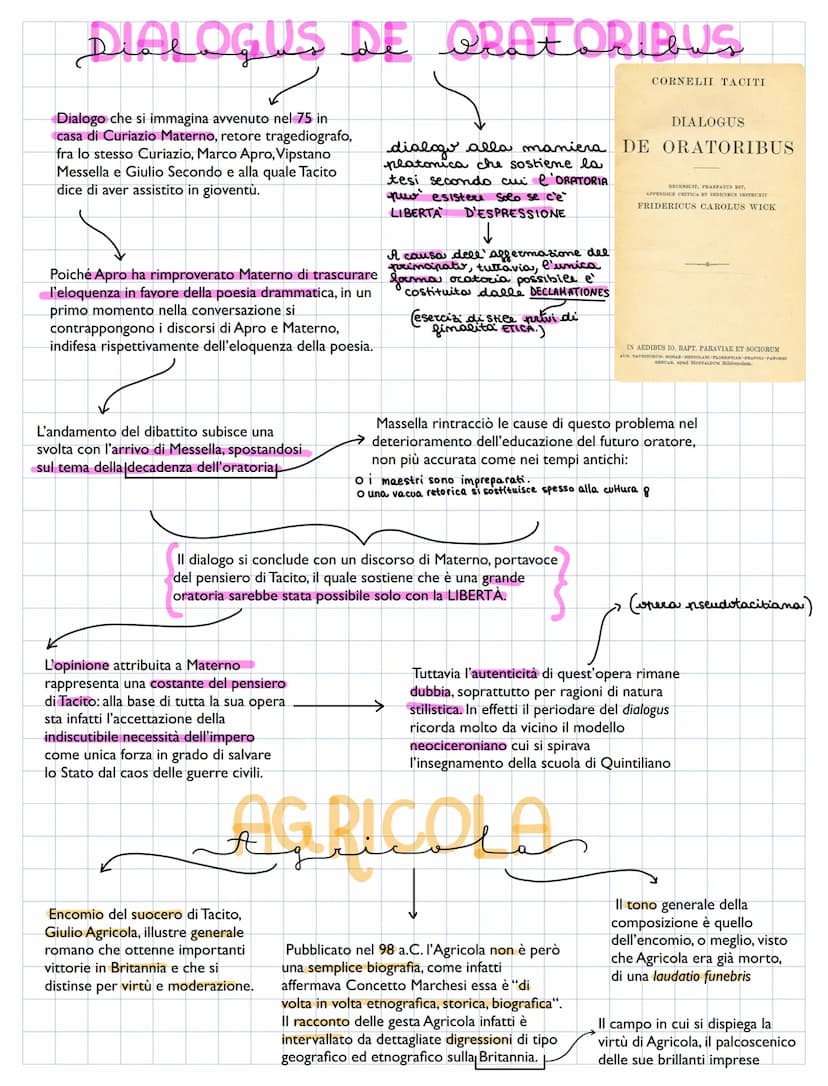 DIALOGUS DE ORATORIBUS
Dialogus de oratoribus
Dialogo che si immagina avvenuto nel 75 in
casa di Curiazio Materno, retore tragediografo,
fra lo stesso Curiazio, Marco Apro, Vipstano
Messella e Giulio Secondo e alla quale Tacito
dice di aver assistito in gioventù.
dialogo alla maniera
platonica che sostiene la
tesi secondo cui l'ORATORIA
può esistere solo se c'è
LIBERTÀ D'ESPRESSIONE
CORNELII TACITI
DIALOGUS
DE ORATORIBUS
RECENSUIT, PRAEFATUS EST,
APPENDICE CRITICA ET INDICIBUS INSTRUXIT
FRIDERICUS CAROLUS WICK
IN AEDIBUS IO. BAPT. PARAVIAE ET SOCIORUM
Poiché Apro ha rimproverato Materno di trascurare
l'eloquenza in favore della poesia drammatica, in un
primo momento nella conversazione si
contrappongono i discorsi di Apro e Materno,
indifesa rispettivamente dell'eloquenza della poesia.
A causa dell'affermazione del
principato, tuttavia, l'unica
forma oratoria possibile è
costituita dalle DECLAMATIONES
(esercizi di stile privi di
finalità ETICA.)
L'andamento del dibattito subisce una
svolta con l'arrivo di Messella, spostandosi
sul tema della decadenza dell'oratoria.
Massella rintracciò le cause di questo problema nel
deterioramento dell'educazione del futuro oratore,
non più accurata come nei tempi antichi:
o i maestri sono impreparati.
o una vacua retorica si sostituisce spesso alla cultura
Il dialogo si conclude con un discorso di Materno, portavoce
del pensiero di Tacito, il quale sostiene che è una grande
oratoria sarebbe stata possibile solo con la LIBERTÀ.
(opera pseudotacitiana)
L'opinione attribuita a Materno
rappresenta una costante del pensiero
di Tacito: alla base di tutta la sua opera
sta infatti l'accettazione della
indiscutibile necessità dell'impero
come unica forza in grado di salvare
lo Stato dal caos delle guerre civili.
Tuttavia l'autenticità di quest'opera rimane
dubbia, soprattutto per ragioni di natura
stilistica. In effetti il periodare del dialogus
ricorda molto da vicino il modello
neociceroniano cui si spirava
l'insegnamento della scuola di Quintiliano
AGRICOLA
Agricola
Encomio del suocero di Tacito,
Giulio Agricola, illustre generale
romano che ottenne importanti
vittorie in Britannia e che si
distinse per virtù e moderazione.
Pubblicato nel 98 a.C. l'Agricola non è però
una semplice biografia, come infatti
affermava Concetto Marchesi essa è "di
volta in volta etnografica, storica, biografica".
Il racconto delle gesta Agricola infatti è
intervallato da dettagliate digressioni di tipo
geografico ed etnografico sulla Britannia.
Il tono generale della
composizione è quello
dell'encomio, o meglio, visto
che Agricola era già morto,
di una laudatio funebris
Il campo in cui si dispiega la
virtù di Agricola, il palcoscenico
delle sue brillanti imprese